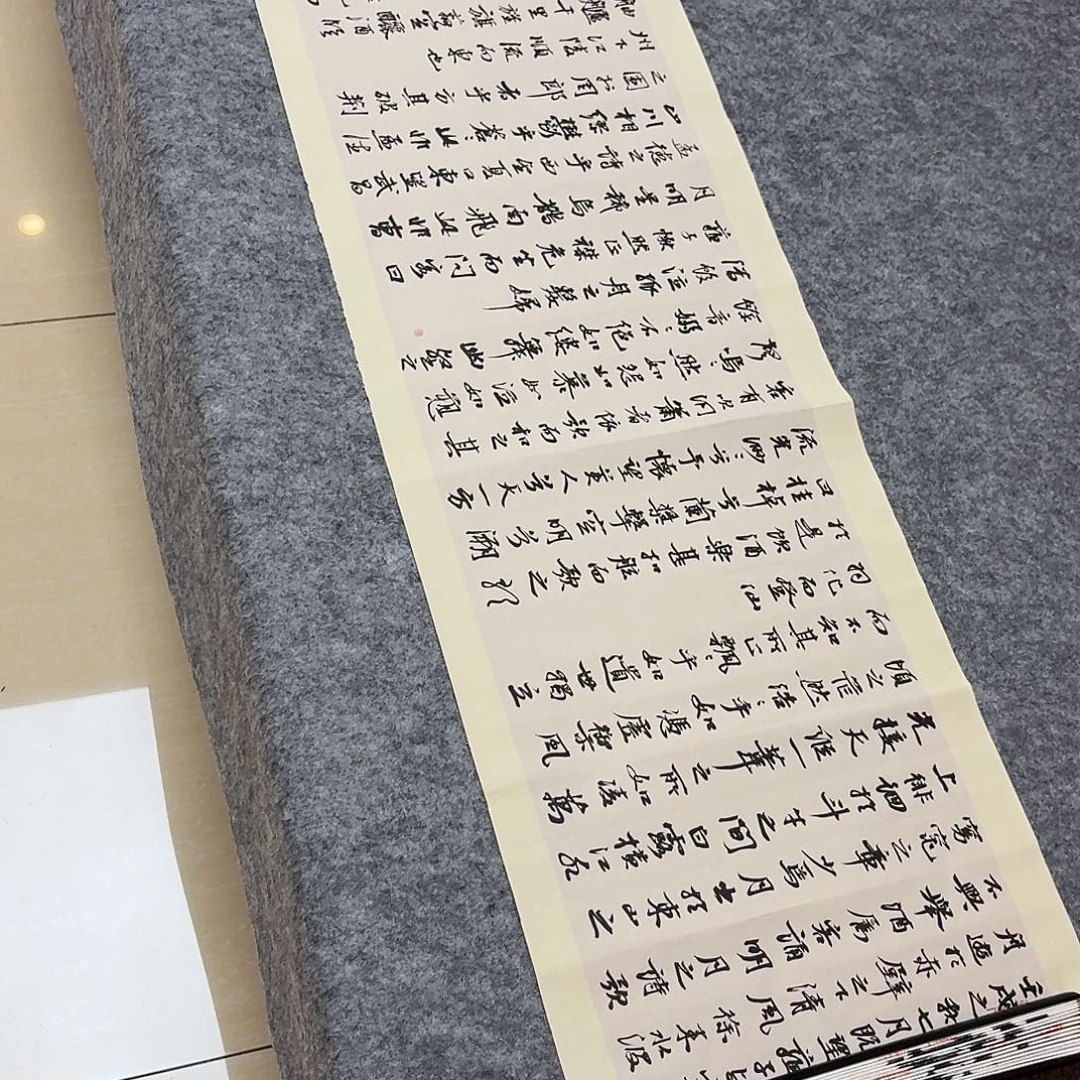 壬戌之秋七月既望蘇子與
舟遊於赤壁之下清風徐來水波
不興舉酒屬客誦明月之詩歌
窈窕之章少焉月出於東山之
上徘徊於斗牛之間白露橫江水
光接天縱一葦之所如凌萬
頃之茫然浩〻乎如馮虛御風
而不知其所止飄〻乎如遺世獨立
羽化而登仙
於是飲酒樂甚扣舷而歌之歌
曰桂棹兮蘭槳擊空明兮溯
流光渺〻兮予懷望美人兮天一方
客有吹洞簫者倚歌而和之其
聲嗚〻然如怨如慕如泣如愬
餘音嫋〻不絕如縷舞幽壑之
潛蛟泣孤舟之嫠婦
蘇子愀然正襟危坐而問客曰
月明星稀烏鵲南飛此非曹
孟德之詩乎西望夏口東望武昌
山川相繆鬱乎蒼〻此非孟德
之困於周郎者乎方其破荊
州下江陵順流而東也
舳艫千里旌旗蔽空釃酒臨